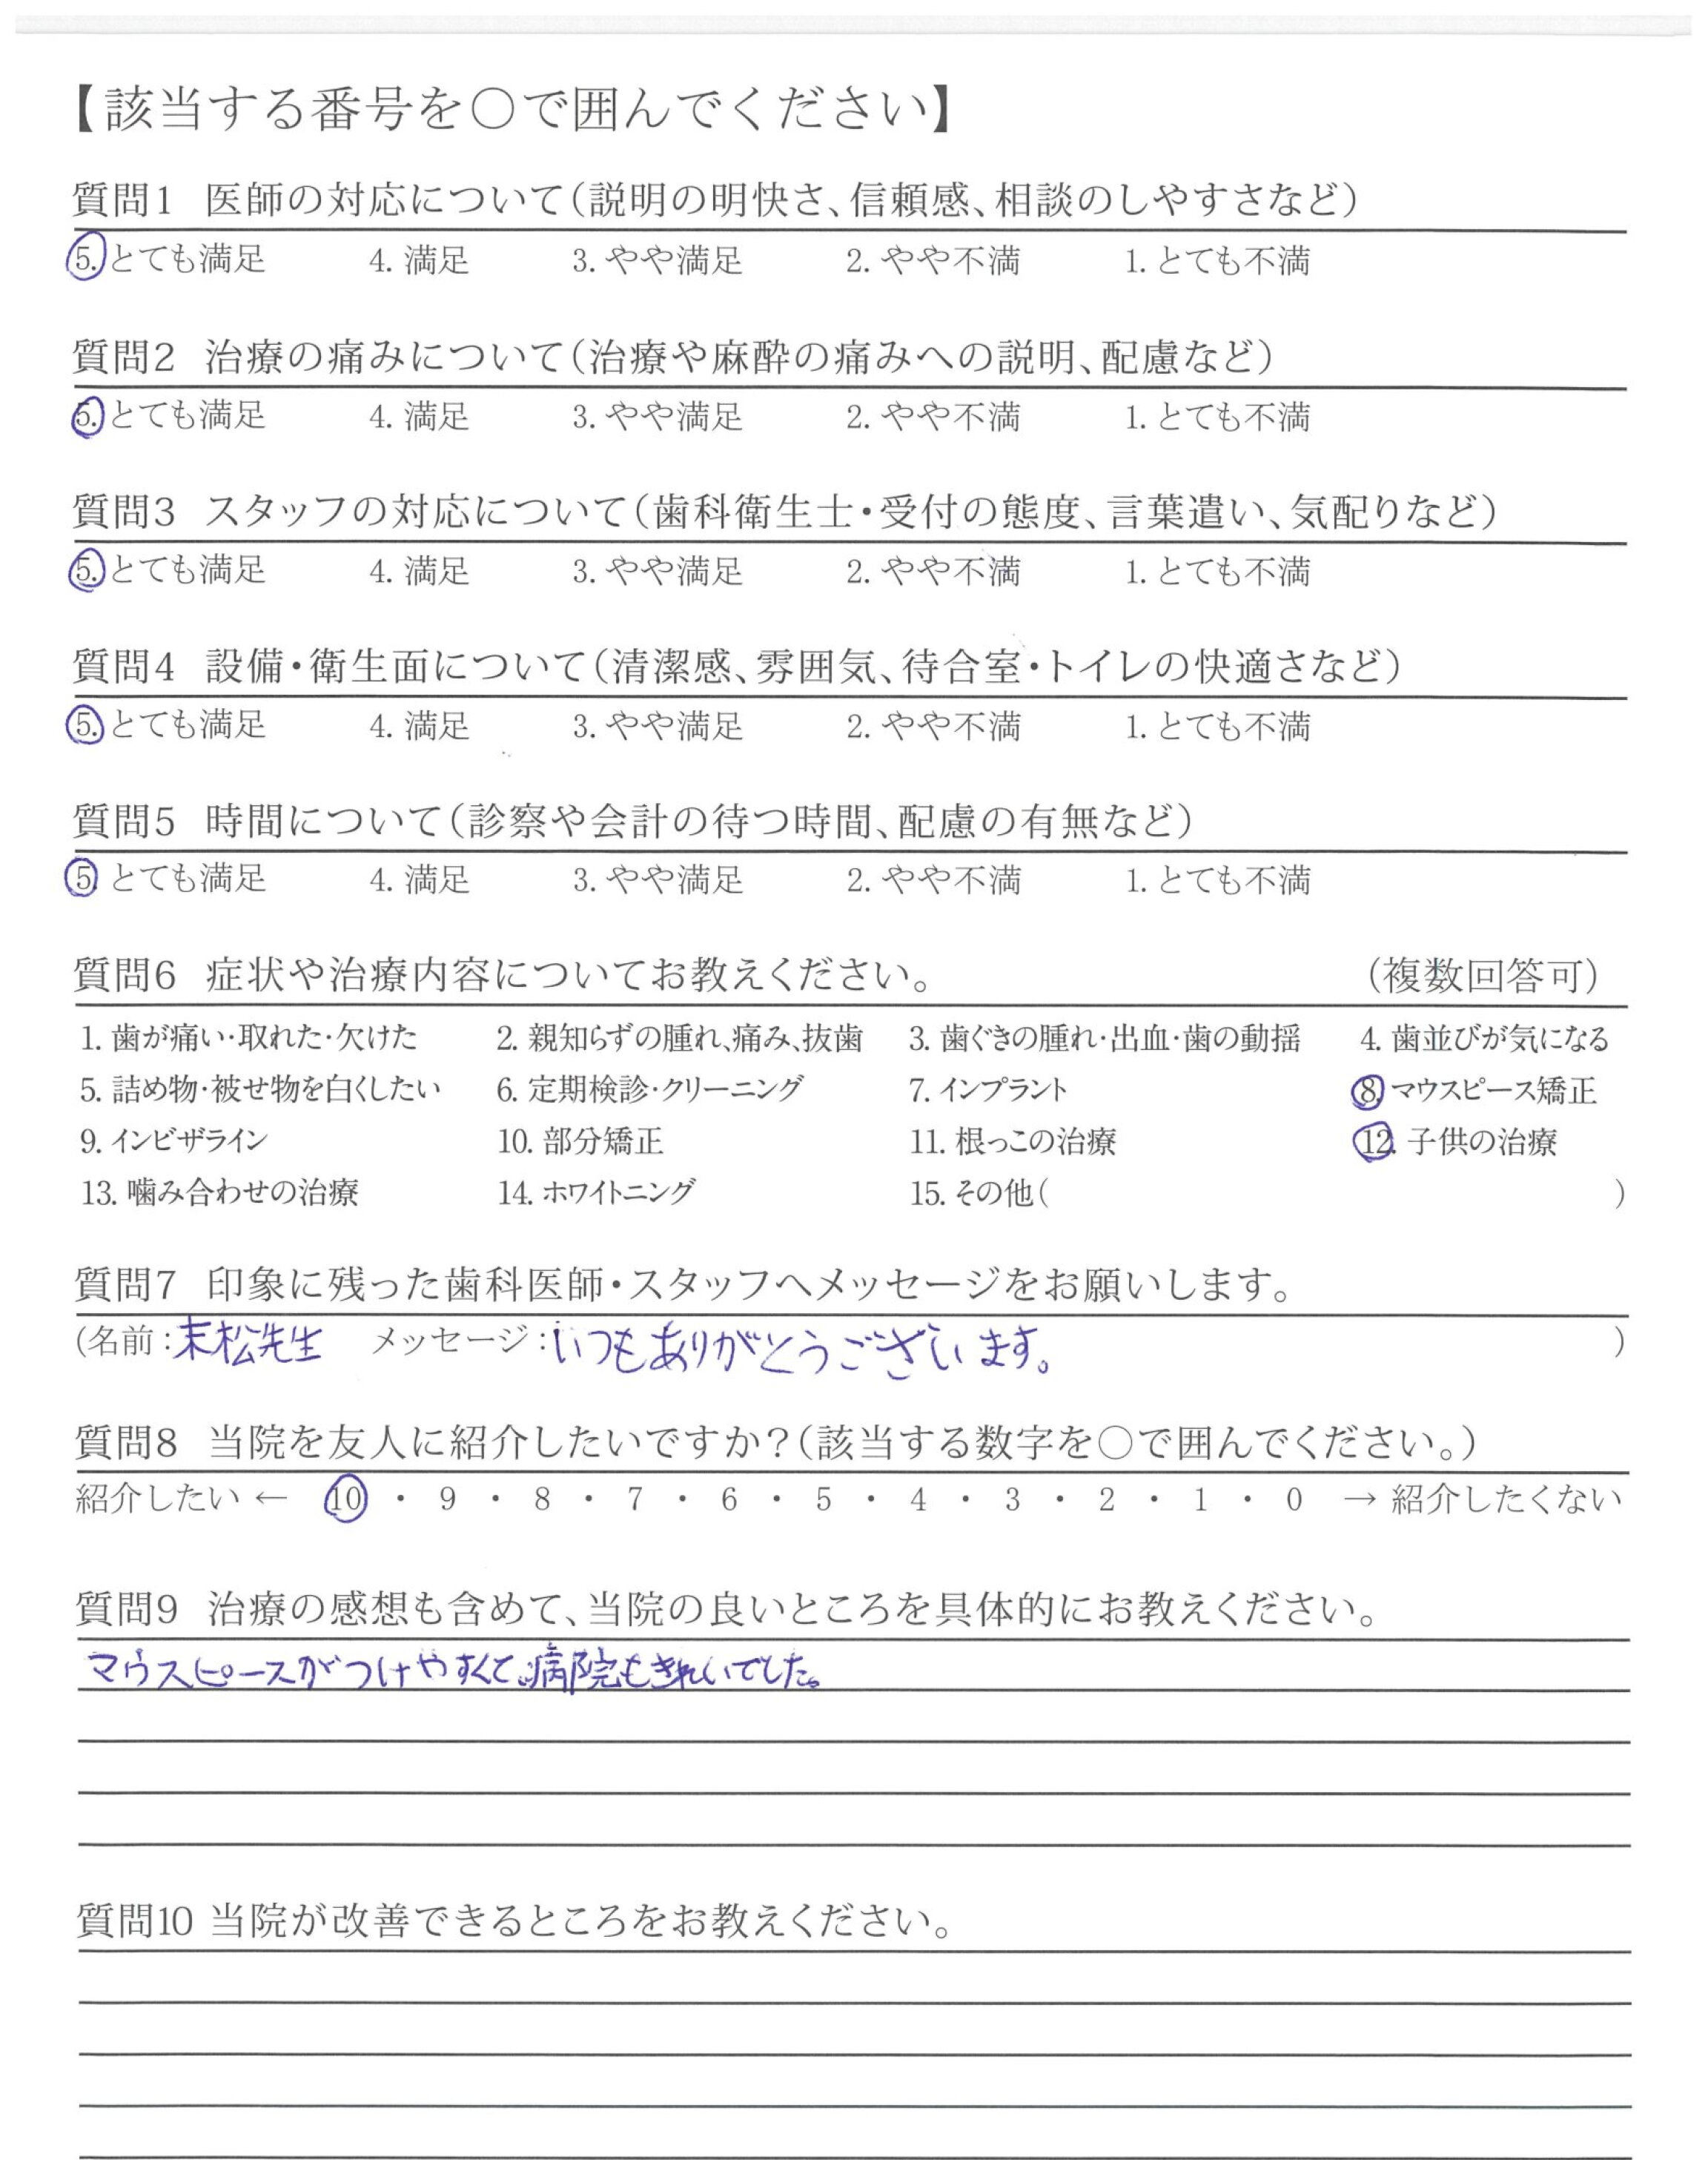 【該当する番号を〇で囲んでください】
質問1 医師の対応について（説明の明快さ、信頼感、相談のしやすさなど）
5. とても満足 4. 満足 3. やや満足 2. やや不満 1. とても不満
質問2 治療の痛みについて（治療や麻酔の痛みへの説明、配慮など）
5. とても満足 4. 満足 3. やや満足 2. やや不満 1. とても不満
質問3 スタッフの対応について（歯科衛生士・受付の態度、言葉遣い、気配りなど）
5. とても満足 4. 満足 3. やや満足 2. やや不満 1. とても不満
質問4 設備・衛生面について（清潔感、雰囲気、待合室・トイレの快適さなど）
5. とても満足 4. 満足 3. やや満足 2. やや不満 1. とても不満
質問5 時間について（診察や会計の待つ時間、配慮の有無など）
5. とても満足 4. 満足 3. やや満足 2. やや不満 1. とても不満
質問6 症状や治療内容についてお教えください。 （複数回答可）
1. 歯が痛い・取れた・欠けた 2. 親知らずの腫れ、痛み、抜歯 3. 歯ぐきの腫れ・出血・歯の動揺 4. 歯並びが気になる
5. 詰め物・被せ物を白くしたい 6. 定期検診・クリーニング 7. インプラント 8. マウスピース矯正
9. インビザライン 10. 部分矯正 11. 根っこの治療 12. 子供の治療
13. 噛み合わせの治療 14. ホワイトニング 15. その他（ ）
質問7 印象に残った歯科医師・スタッフへメッセージをお願いします。
（名前：末松先生 メッセージ：いつもありがとうございます。 ）
質問8 当院を友人に紹介したいですか？（該当する数字を〇で囲んでください。）
紹介したい ← 10 ・ 9 ・ 8 ・ 7 ・ 6 ・ 5 ・ 4 ・ 3 ・ 2 ・ 1 ・ 0 → 紹介したくない
質問9 治療の感想も含めて、当院の良いところを具体的にお教えください。
マウスピースがつけやすくて、病院もきれいでした。
質問10 当院が改善できるところをお教えください。